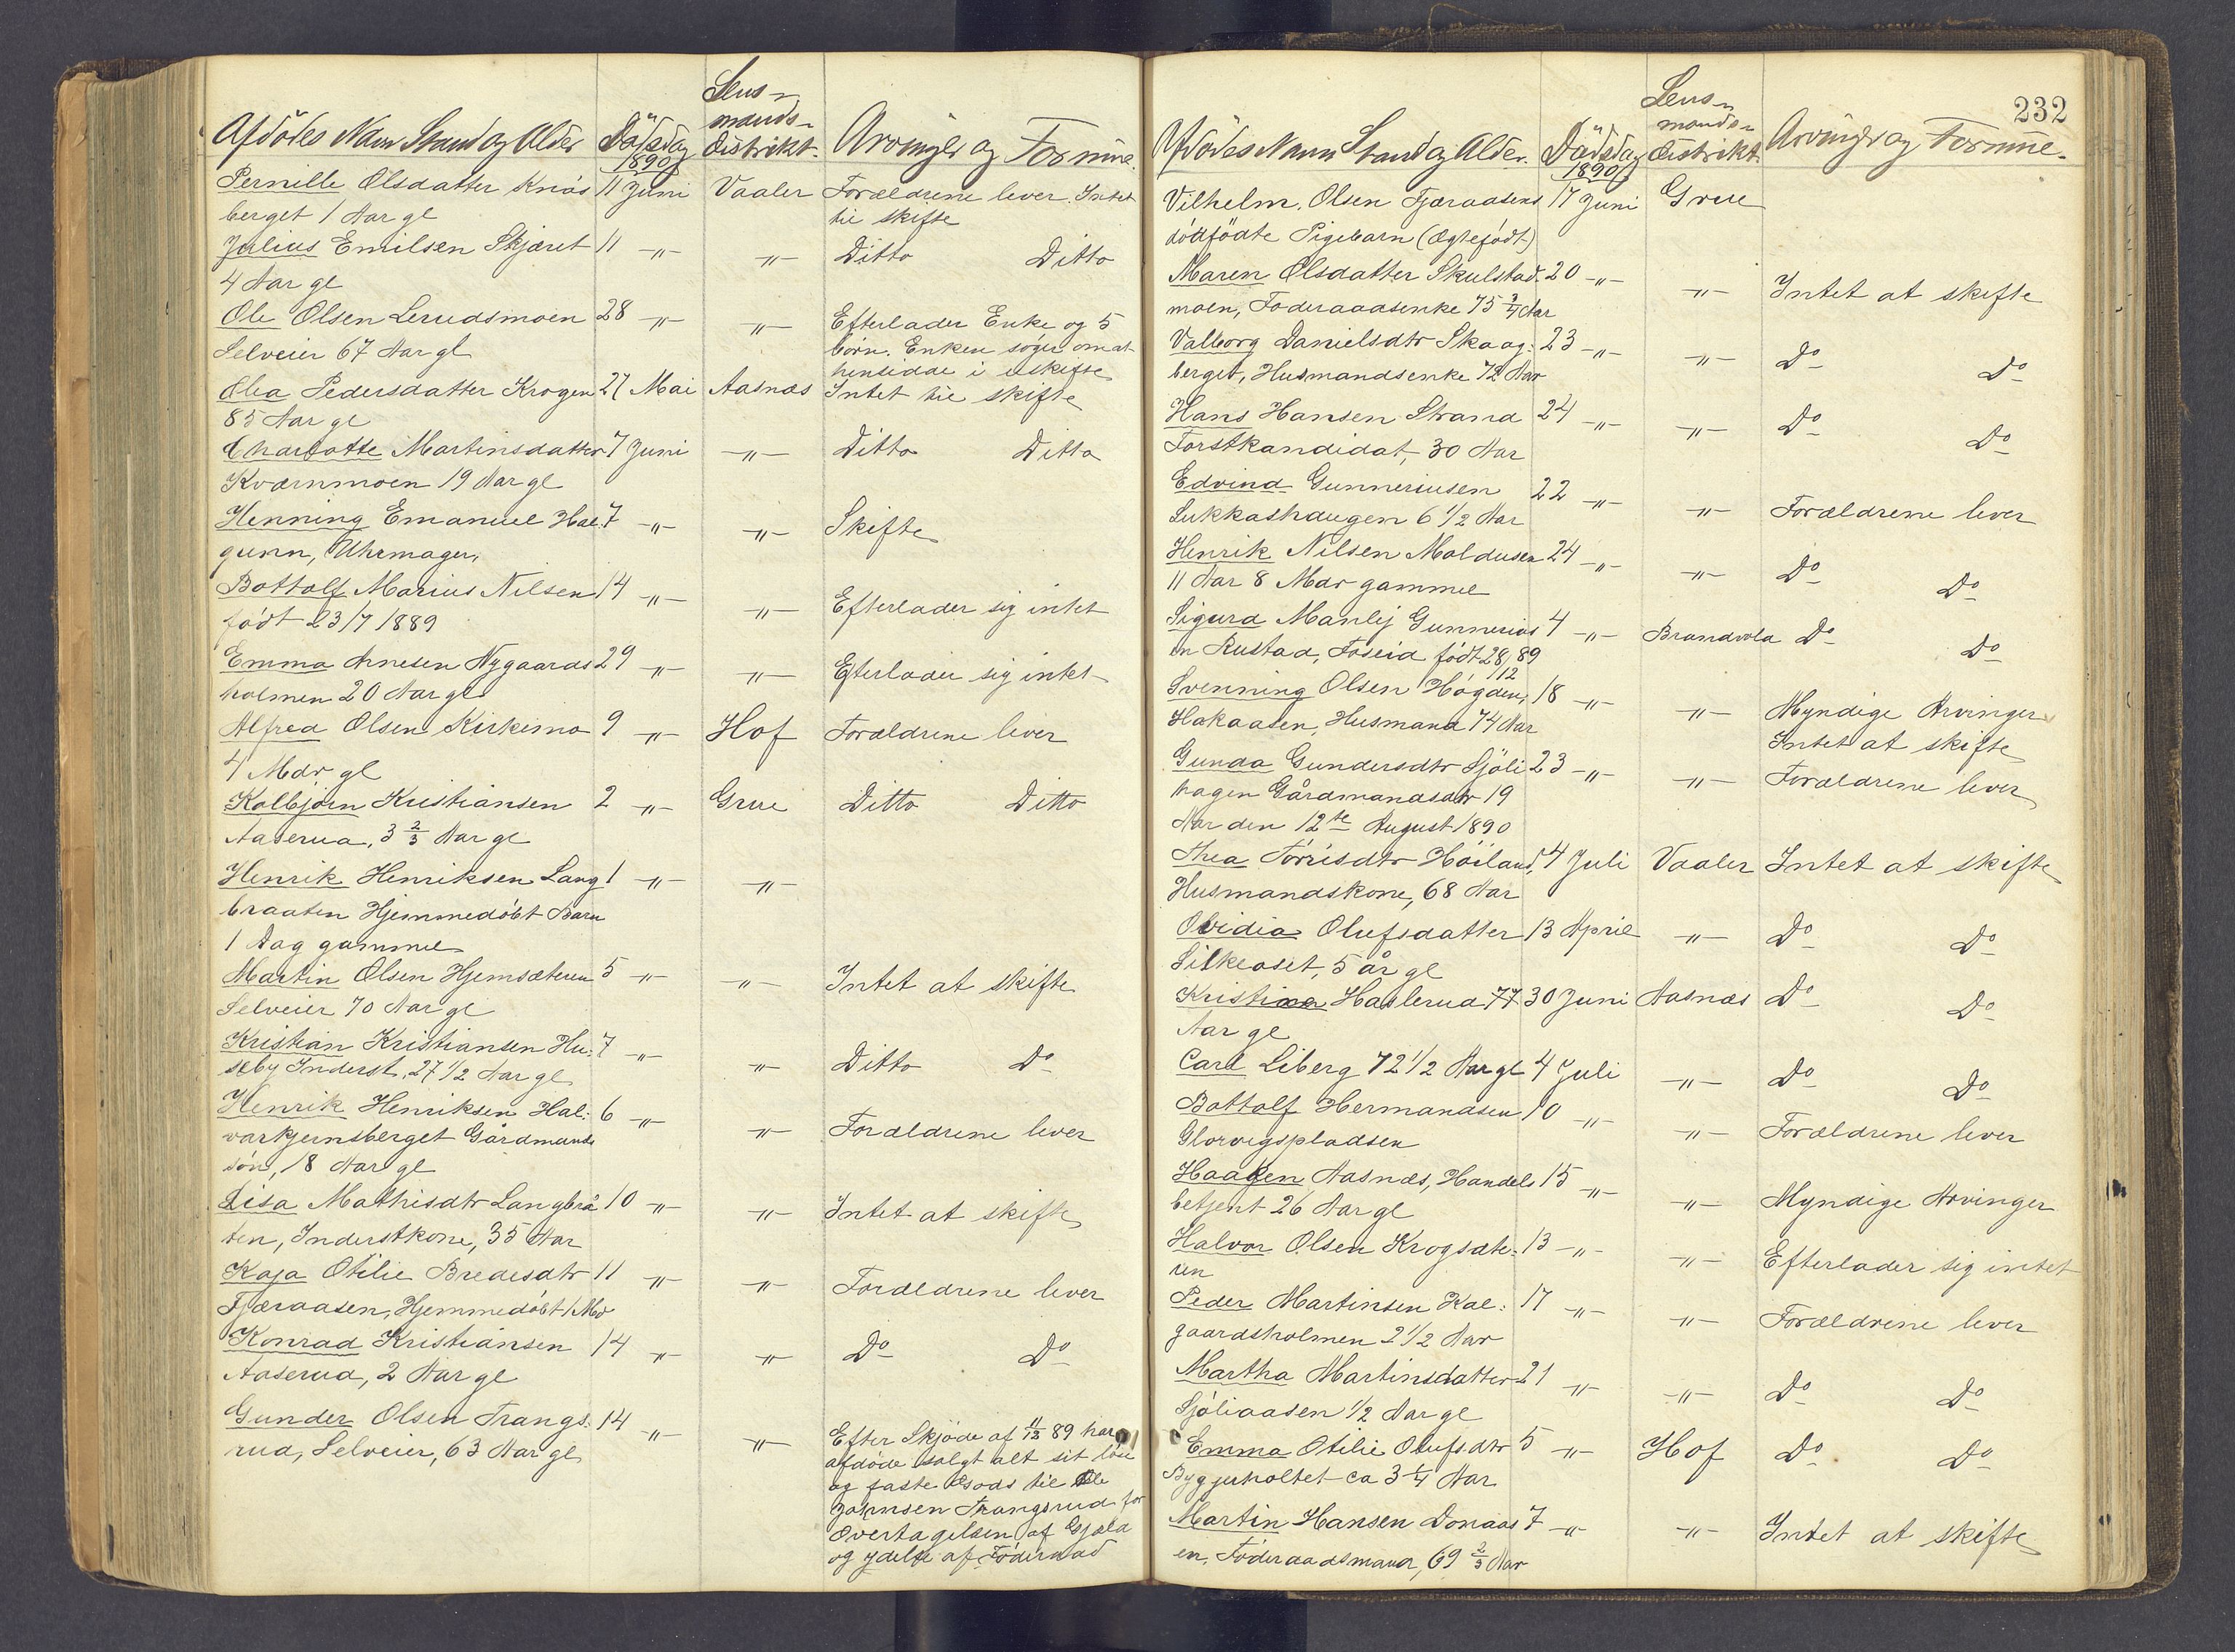 Afdödes Navn Stand og Alder
Dödsdag
1890
Lens-
mands-
distrikt.
Arvinger og Formue
Pernille Olsdatter Knös 11 Juni Vaaler Forældrene lever. Intet
berget 1 Aar gl til skifte
Julius Emilsen Skjæret 11 -"- -"- Ditto Ditto
4 Aar gl
Ole Olsen Lerudsmoen 28 -"- -"- Efterlader Enke og 5
Selveier 67 Aar gl börn. Enken söger om at
hensidde i uskifte
Olea Pedersdatter Krogen 27 Mai Aasnæs Intet til skifte
85 Aar gl
Charlotte Martinsdatter 7 Juni -"- Ditto Ditto
Kværnmoen 19 Aar gl
Henning Emanuel Hal: 7 -"- -"- Skifte
gunn, Uhrmager,
Bottolf Marius Nilsen 14 -"- -"- Efterlader sig intet
födt 23/7 1889
Emma Arnesen Nygaards 29 -"- -"- Efterlader sig intet
holmen 20 Aar gl
Alfred Olsen Kirkemo 9 -"- Hof Forældrene lever
4 Mdr gl
Kolbjörn Kristiansen 2 -"- Grue Ditto Ditto
Aaserud, 3 2/3 Aar gl
Henrik Henriksen Lang 1 -"- -"-
braaten Hjemmedöbt Barn
1 Dag gammel
Martin Olsen Hjemsæteren 5 -"- -"- Intet at skifte
Selveier 70 Aar gl
Kristian Kristiansen Hu: 7 -"- -"- Ditto Do
seby Inderst, 27 1/2 Aar gl
Henrik Henriksen Hal: 6 -"- -"- Forældrene lever
varkjernsberget Gårdmands
sön, 18 Aar gl
Lisa Mathisdtr Langbrå 10 -"- -"- Intet at skifte
ten, Inderstkone, 35 Aar
Kaja Otilie Bredesdtr 11 -"- -"- Forældrene lever
Fjæraasen, Hjemmedöbt 1 Md
Konrad Kristiansen 14 -"- -"- Do Do
Aaserud, 2 Aar gl
Gunder Olsen Trangs: 14 -"- -"- Efter Skjöde af 11/12 89 har
rud, Selveier, 63 Aar gl afdöde solgt alt sit löse
og faste Gods til Ole
Johnsen Trangsrud for
Overtagelsen af Gjæld
og ydelse af Föderaad
232
Afdödes Navn Stand og Alder.
Dödsdag
1890
Lens-
mands-
distrikt.
Arvinger og Formue.
Vilhelm Olsen Fjæraasens 17 Juni Grue
dödfödte Pigebarn (Ægtefödt)
Maren Olsdatter Skulstad- 20 -"- -"- Intet at skifte
moen, Föderaadsenke 75 3/4 Aar
Valborg Danielsdtr Skaag: 23 -"- -"- Do Do
berget, Husmandsenke 72 Aar
Hans Hansen Strand 24 -"- -"- Do Do
Forstkandidat, 30 Aar
Edvind Gunneriusen 22 -"- -"- Forældrene lever
Sukkashaugen 6 1/2 Aar
Henrik Nilsen Moldusen 24 -"- -"- Do Do
11 Aar 8 Mdr gammel
Sigurd Manlej Gunnerius 4 -"- Brandvold Do Do
en Rustad, Föseid födt 28/12 89
Svenning Olsen Högden, 18 -"- -"- Myndige Arvinger
Hakaasen, Husmand 74 Aar Intet at skifte
Gunda Gundersdtr Sjöli 23 -"- -"- Forældrene lever
hagen Gårdmandsdtr 19
Aar den 12te August 1890
Thea Törrisdtr Höiland, 4 Juli Vaaler Intet at skifte
Husmandskone, 68 Aar
Ovidia Olufsdatter 13 April -"- Do Do
Silkeoset, 5 år gl
Kristina Haslerud 77 30 Juni Aasnæs Do Do
Aar gl
Carl Liberg 72 1/2 Aar gl 4 Juli -"- Do Do
Bottolf Hermandsen 10 -"- -"- Forældrene lever
Glorvigspladsen
Haagen Aasnæs, Handels 15 -"- -"- Myndige Arvinger
betjent 26 Aar gl
Halvor Olsen Krogsæte: 13 -"- -"- Efterlader sig intet
ren
Peder Martinsen Kal: 17 -"- -"- Forældrene lever
gaardsholmen 2 1/2 Aar
Martha Martinsdatter 21 -"- -"- Do Do
Sjöliaasen 1/2 Aar gl
Emma Otilie Olufsdtr 5 -"- Hof Do Do
Byggjuholtet ca 3 1/4 Aar
Martin Hansen Donaas 7 -"- -"- Intet at skifte
en, Föderaadsmand, 69 2/3 Aar